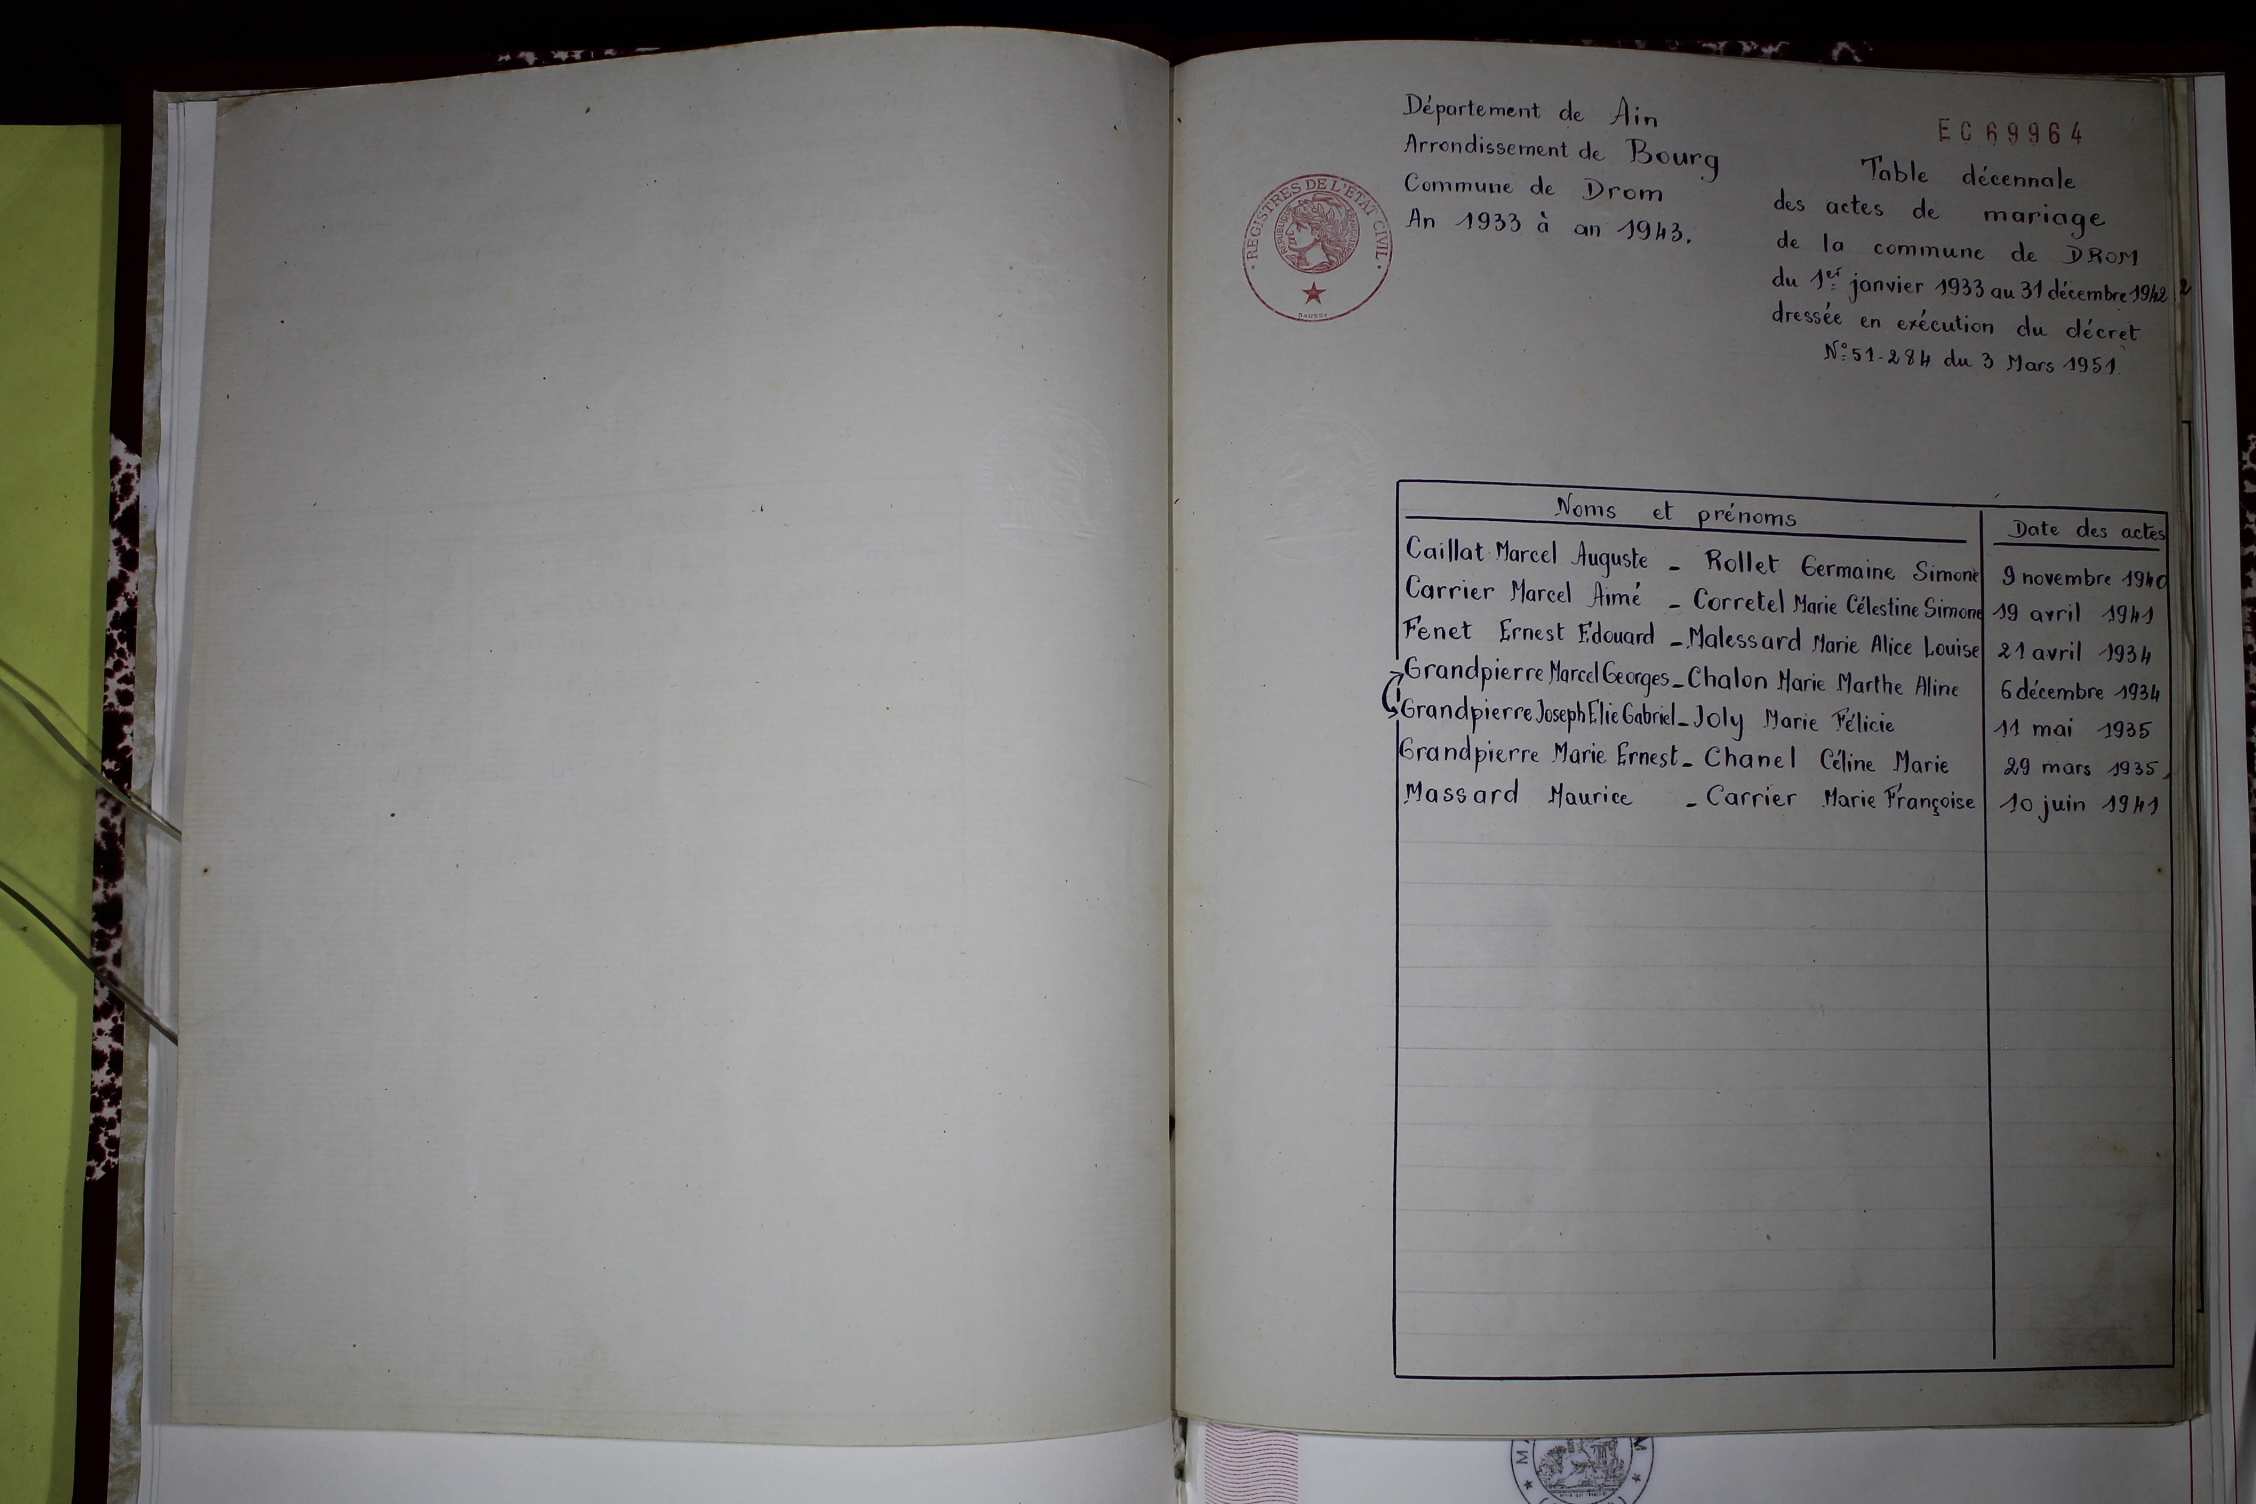 Département de Ain
Arrondissement de Bourg
Commune de Drom
An 1933 à an 1943.
REGISTRES DE L'ETAT CIVIL
EC 69964
Table décennale
des actes de mariage
de la commune de DROM
du 1er janvier 1933 au 31 décembre 1942
dressée en exécution du décret
N° 51-284 du 3 Mars 1951
Noms et prénoms Date des actes
Caillat Marcel Auguste - Rollet Germaine Simone 9 novembre 1940
Carrier Marcel Aimé - Corretel Marie Célestine Simone 19 avril 1941
Fenet Ernest Edouard - Malessard Marie Alice Louise 21 avril 1934
Grandpierre Marcel Georges - Chalon Marie Marthe Aline 6 décembre 1934
Grandpierre Joseph Elie Gabriel - Joly Marie Félicie 11 mai 1935
Grandpierre Marie Ernest - Chanel Céline Marie 29 mars 1935
Massard Maurice - Carrier Marie Françoise 10 juin 1941